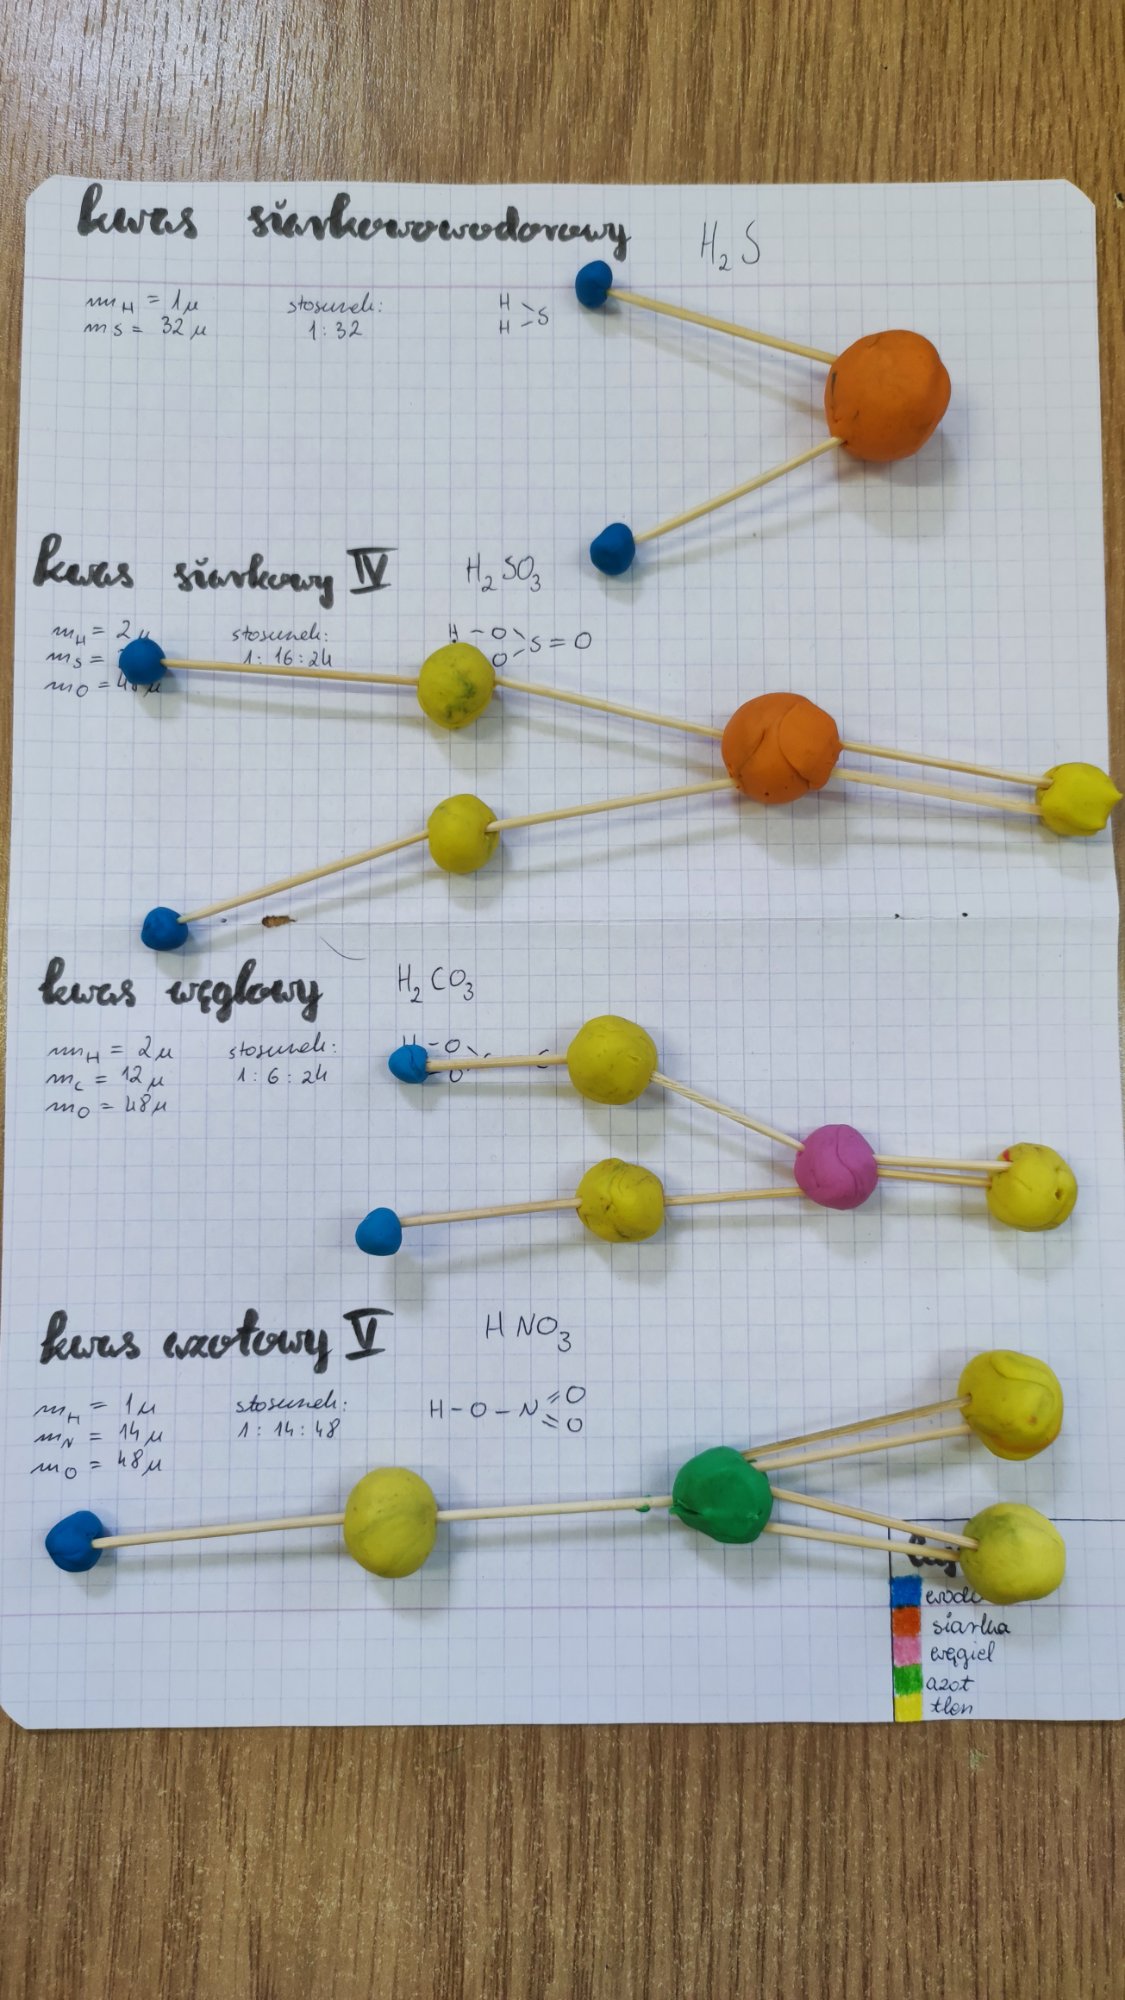 kwas siarkowowodorowy H₂S
mH = 1u
mS = 32u
stosunek:
1:32
H
H > S
kwas siarkowy IV H₂SO₃
mH = 2u
mS =
mO = 48u
stosunek:
1:16:24
H - O \ S = O
O /
kwas węglowy H₂CO₃
mH = 2u
mC = 12u
mO = 48u
stosunek:
1:6:24
H - O \
O
kwas azotowy V HNO₃
mH = 1u
mN = 14u
mO = 48u
stosunek:
1:14:48
H - O - N = O
= O
siarka
węgiel
azot
tlen